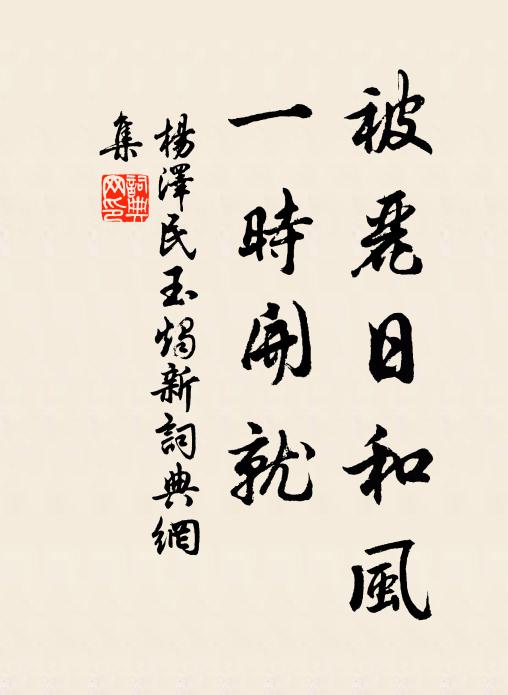 被麗日和風
一時開就
楊澤民玉燭新詞典網
集
詞典網印